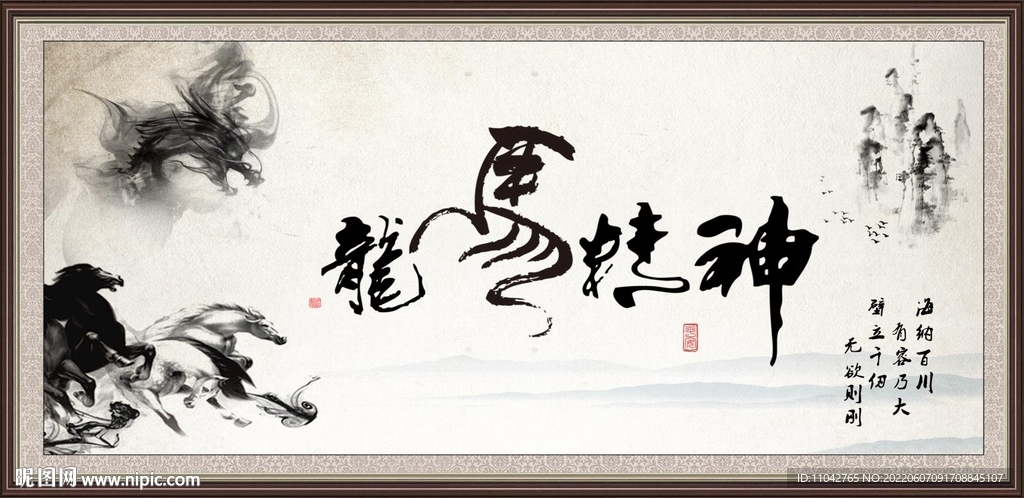 龍馬精神
海纳百川
有容乃大
壁立千仞
无欲则刚
昵图网 www.nipic.com
ID:11042765 NO:20220607091708845107